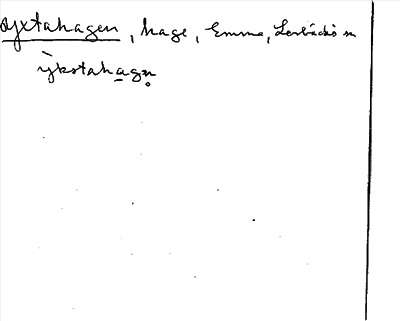 yxtahagen, hage, Emma, Lerbäcks sn
ỳkstahagn̥